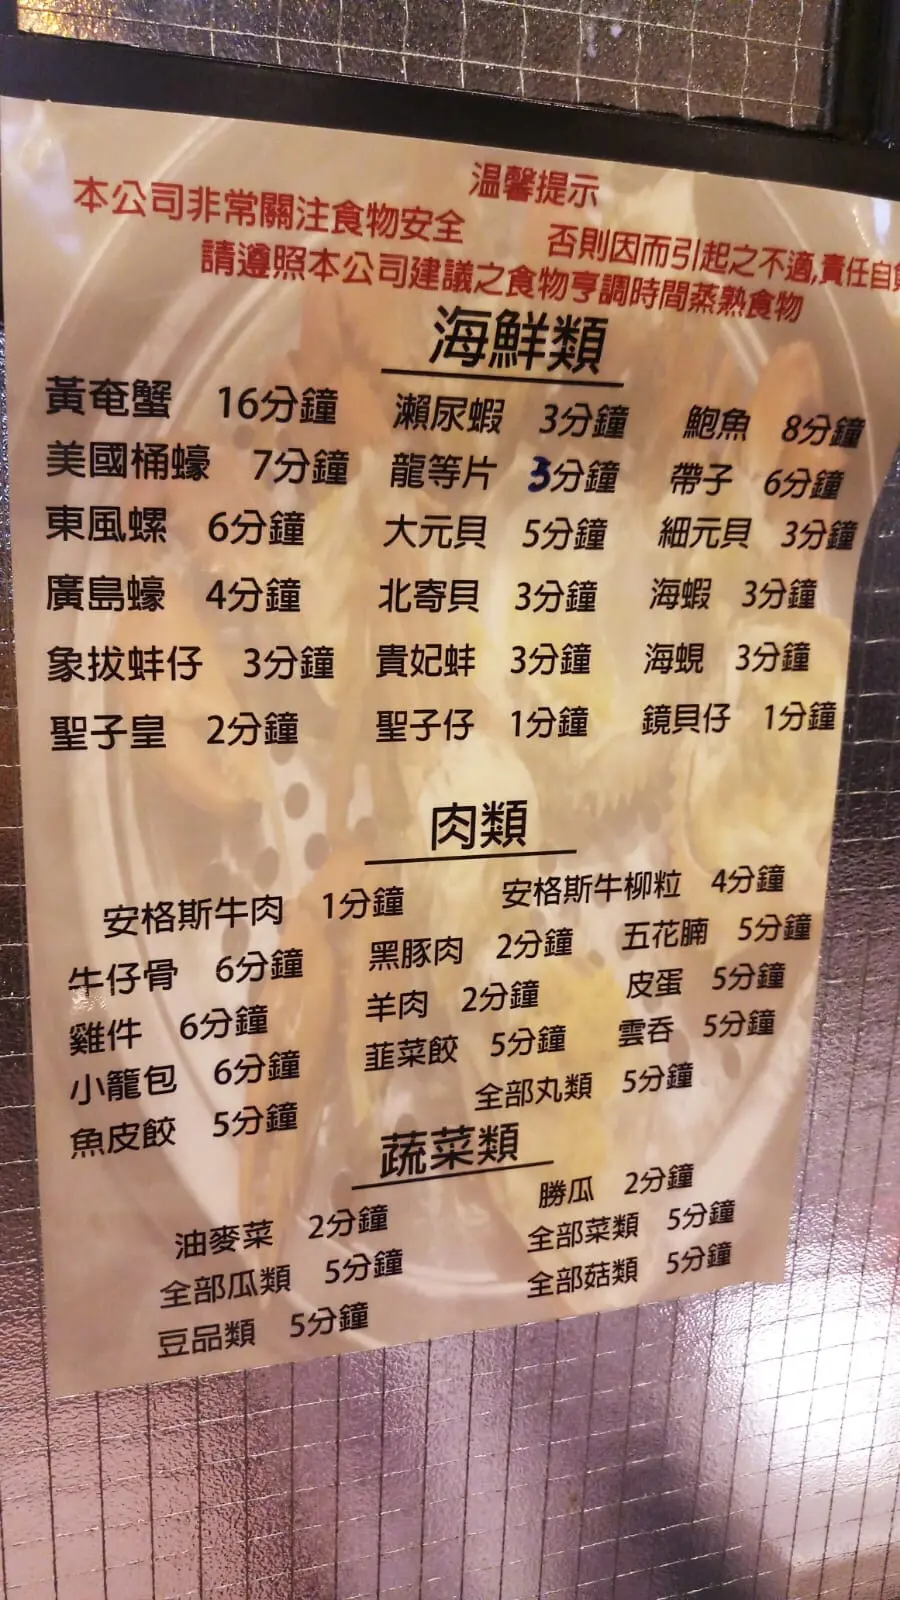 溫馨提示
本公司非常關注食物安全 否則因而引起之不適,責任自負
請遵照本公司建議之食物亨調時間蒸熟食物
海鮮類
黃奄蟹 16分鐘 瀨尿蝦 3分鐘 鮑魚 8分鐘
美國桶蠔 7分鐘 龍等片 3分鐘 帶子 6分鐘
東風螺 6分鐘 大元貝 5分鐘 細元貝 3分鐘
廣島蠔 4分鐘 北寄貝 3分鐘 海蝦 3分鐘
象拔蚌仔 3分鐘 貴妃蚌 3分鐘 海蜆 3分鐘
聖子皇 2分鐘 聖子仔 1分鐘 鏡貝仔 1分鐘
肉類
安格斯牛肉 1分鐘 安格斯牛柳粒 4分鐘
牛仔骨 6分鐘 黑豚肉 2分鐘 五花腩 5分鐘
雞件 6分鐘 羊肉 2分鐘 皮蛋 5分鐘
小籠包 6分鐘 韮菜餃 5分鐘 雲吞 5分鐘
魚皮餃 5分鐘 全部丸類 5分鐘
蔬菜類
油麥菜 2分鐘 勝瓜 2分鐘
全部瓜類 5分鐘 全部菜類 5分鐘
豆品類 5分鐘 全部菇類 5分鐘